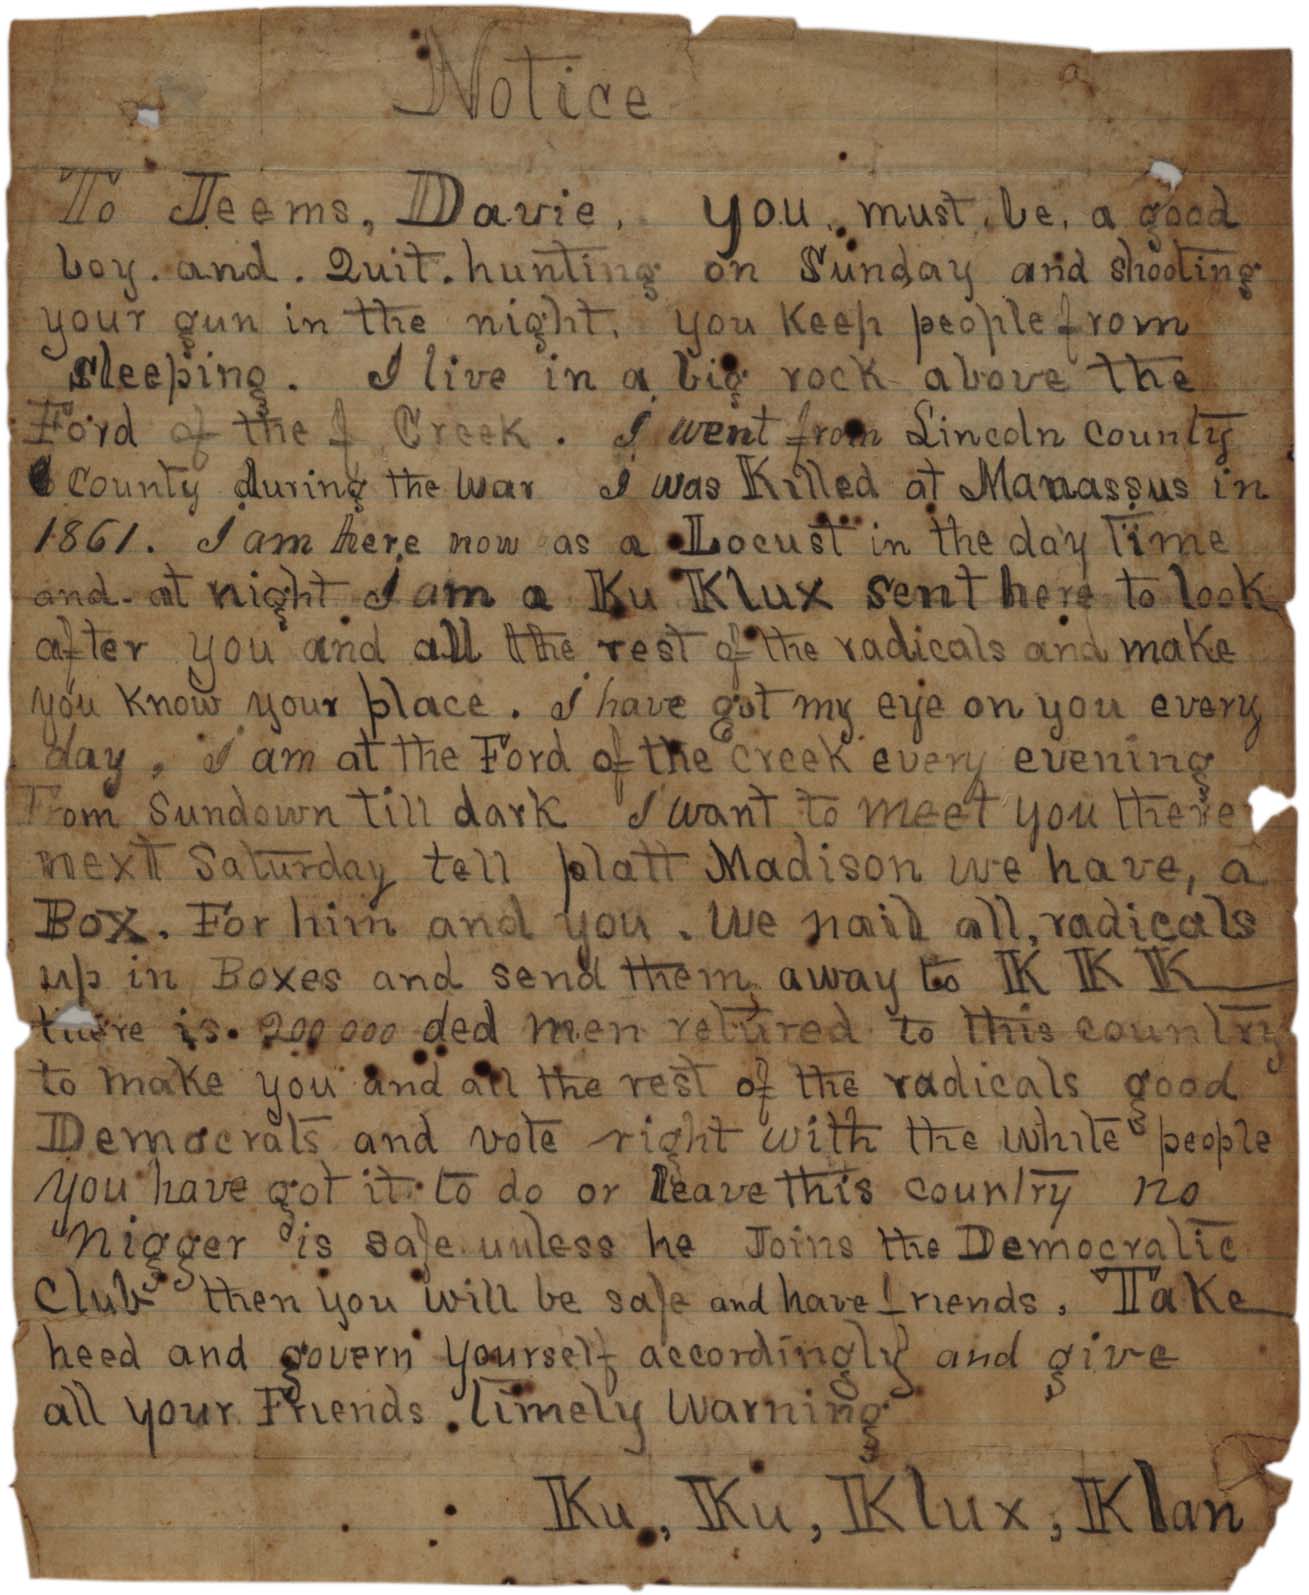 Notice
To Jeems, Davie. you. must. be. a good
boy. and. Quit. hunting on Sunday and shooting
your gun in the night. you keep people from
sleeping. I live in a big rock above the
Ford of the f Creek. I went from Lincoln county
County during the war I was Killed at Manassus in
1861. I am here now as a Locust in the day Time
and. at night I am a Ku Klux sent here to look
after you and all the rest of the radicals and make
you know your place. I have got my eye on you every
day, I am at the Ford of the creek every evening
From Sundown till dark I want to meet you there
next Saturday tell platt Madison we have, a
Box. For him and you. We nail all, radicals
up in Boxes and send them away to KKK
there is. 200 000 ded men retured to this country
to make you and all the rest of the radicals good
Democrats and vote right with the white people
you have got it to do or leave this country no
nigger is safe unless he Joins the Democratic
Club then you will be safe and have friends. Take
heed and govern yourself accordingly and give
all your Friends. timely warning
Ku, Ku, Klux, Klan